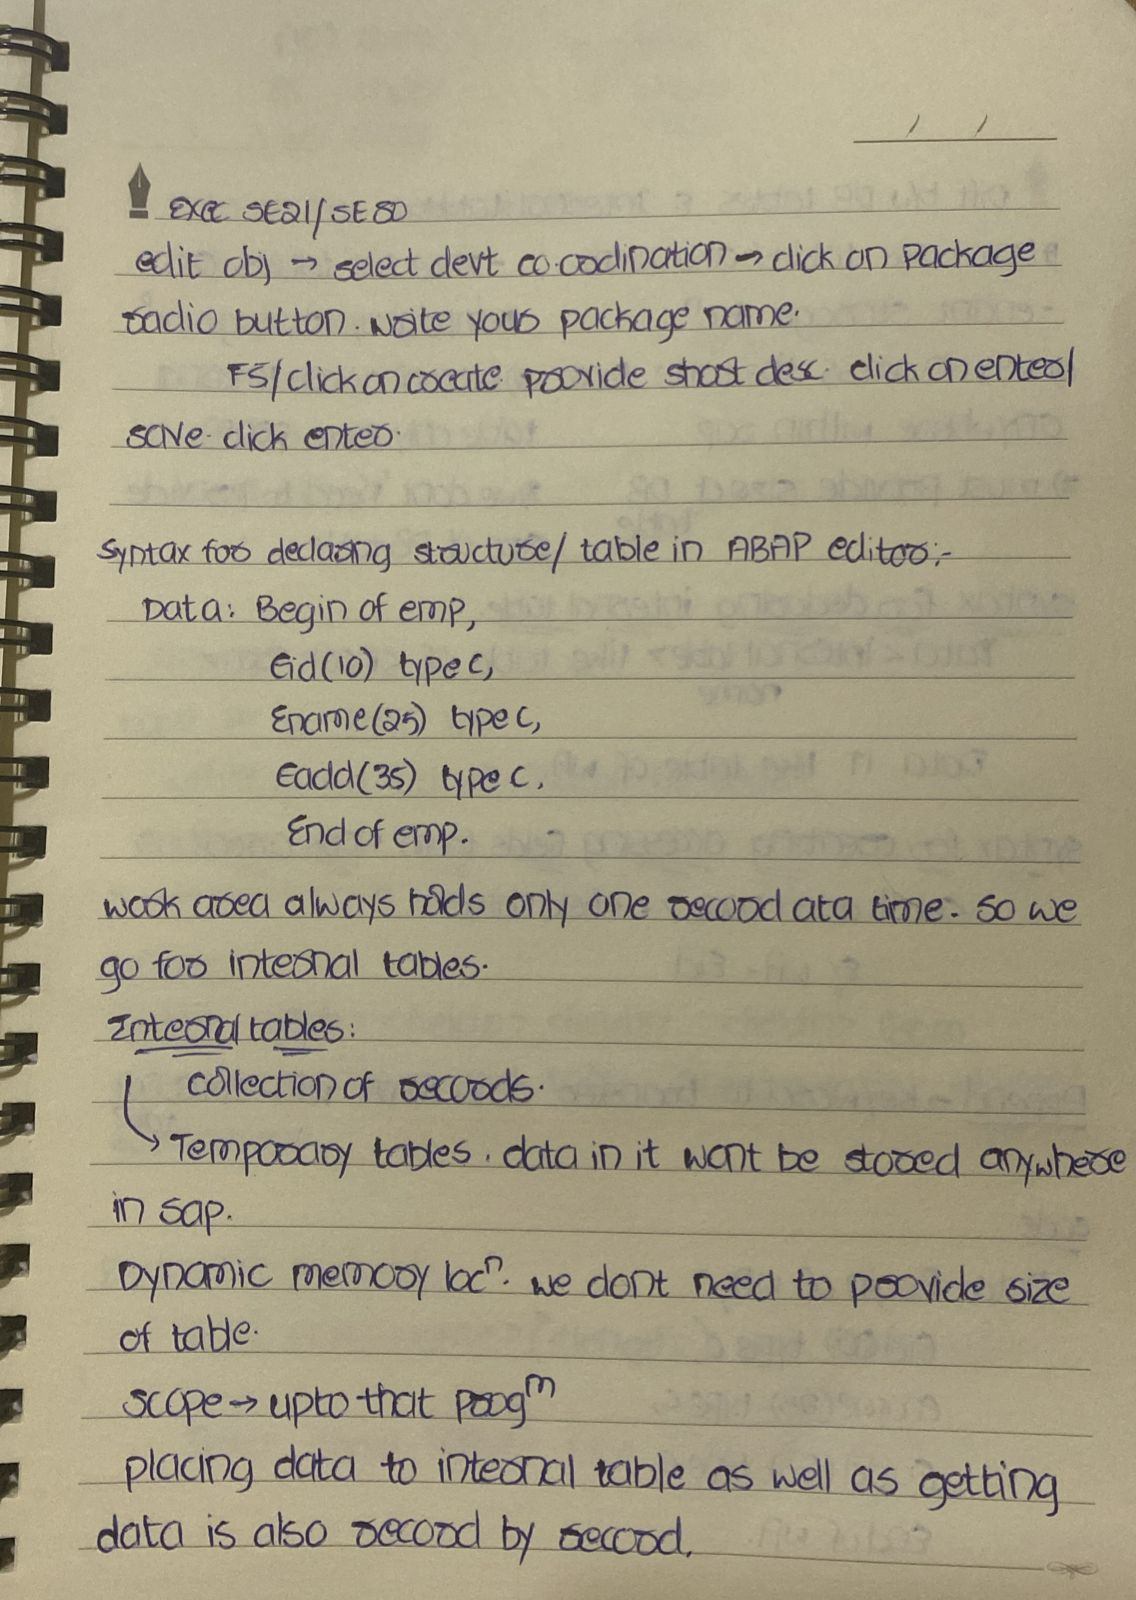 / /
Exec SE21/SE80
edit obj → select devt co.cordination → click on package
radio button. Write your package name.
F5/click on create. provide short desc. click on enter/
save. click enter.
Syntax for declaring structure/ table in ABAP editor:-
Data: Begin of emp,
Eid(10) type c,
Ename(25) type c,
Eadd(35) type c.
End of emp.
work area always holds only one record at a time. so we
go for internal tables.
Internal tables:
collection of records.
→ Temporary tables. data in it wont be stored anywhere
in sap.
Dynamic memory locⁿ. we dont need to provide size
of table.
scope → upto that progᵐ
placing data to internal table as well as getting
data is also record by record.